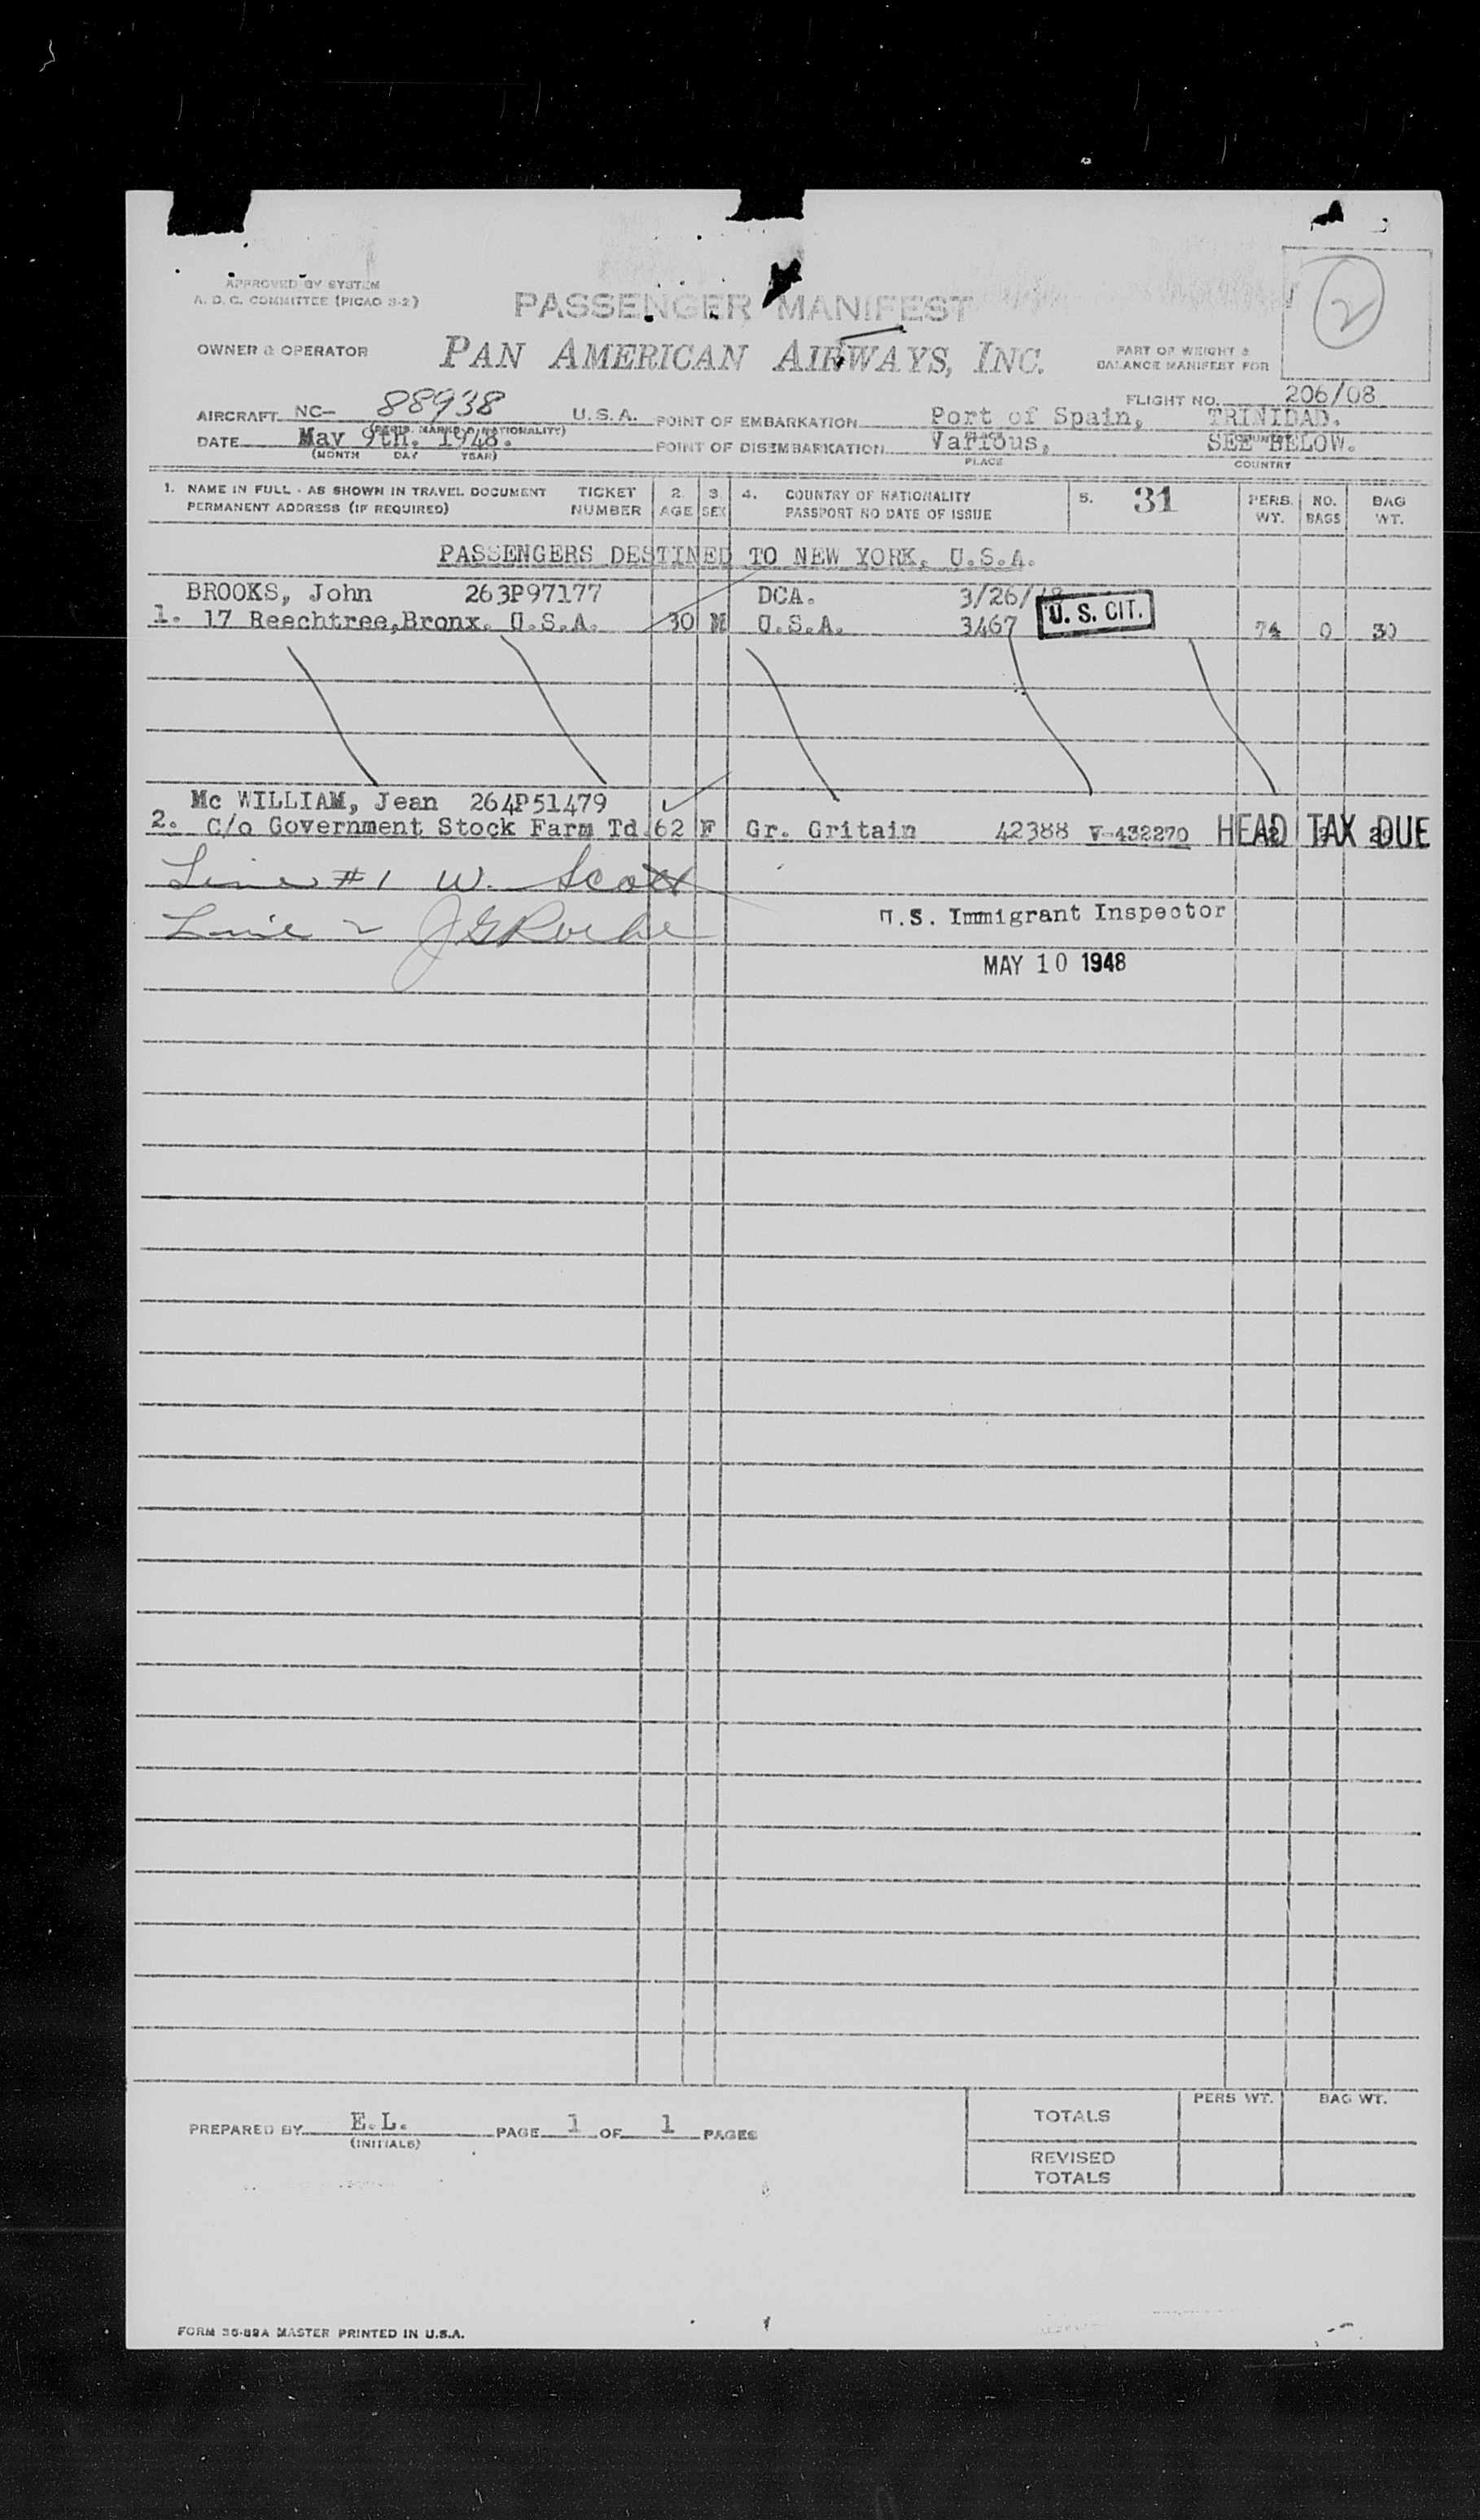 APPROVED BY SYSTEM
A. D. C. COMMITTEE (PICAO S-2)
PASSENGER MANIFEST
2
OWNER & OPERATOR PAN AMERICAN AIRWAYS, INC.
PART OF WEIGHT &
BALANCE MANIFEST FOR
FLIGHT NO. 206/08
AIRCRAFT NC- 88938 U.S.A. POINT OF EMBARKATION Port of Spain, TRINIDAD.
DATE May 9th. 1948. POINT OF DISEMBARKATION Various, SEE BELOW.
(MONTH DAY YEAR) PLACE COUNTRY
1. NAME IN FULL - AS SHOWN IN TRAVEL DOCUMENT TICKET 2. 3. 4. COUNTRY OF NATIONALITY 5. 31 PERS. NO. BAG
PERMANENT ADDRESS (IF REQUIRED) NUMBER AGE SEX PASSPORT NO DATE OF ISSUE WT. BAGS WT.
PASSENGERS DESTINED TO NEW YORK, U.S.A.
BROOKS, John 263P97177 DCA. 3/26/48
1. 17 Reechtree,Bronx. U.S.A. 30 M U.S.A. 3467 U. S. CIT. 74 0 30
Mc WILLIAM, Jean 264P51479
2. C/o Government Stock Farm Td. 62 F Gr. Gritain 42388 V-432270 HEAD TAX DUE
Line #1 W. Scott
Line 2 J G Roche
U.S. Immigrant Inspector
MAY 10 1948
PREPARED BY E.L. PAGE 1 OF 1 PAGES
(INITIALS)
PERS WT. BAG WT.
TOTALS
REVISED
TOTALS
FORM 36-89A MASTER PRINTED IN U.S.A.